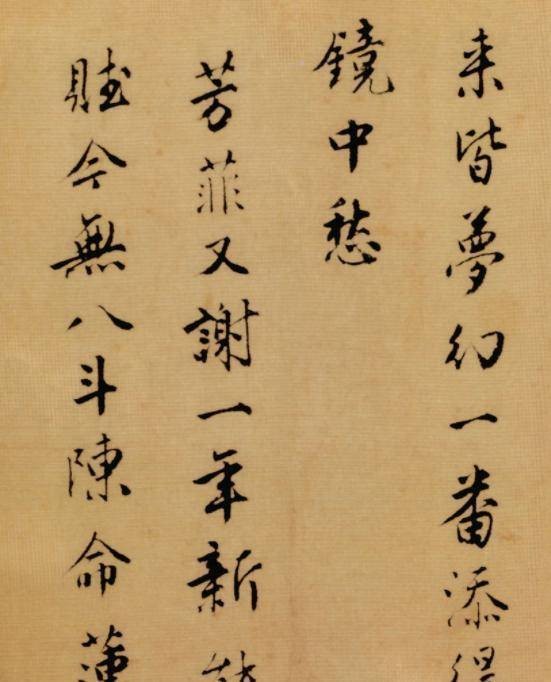 来皆夢幻一番添得
鏡中愁
芳菲又謝一年新
賦今無八斗陳命薄